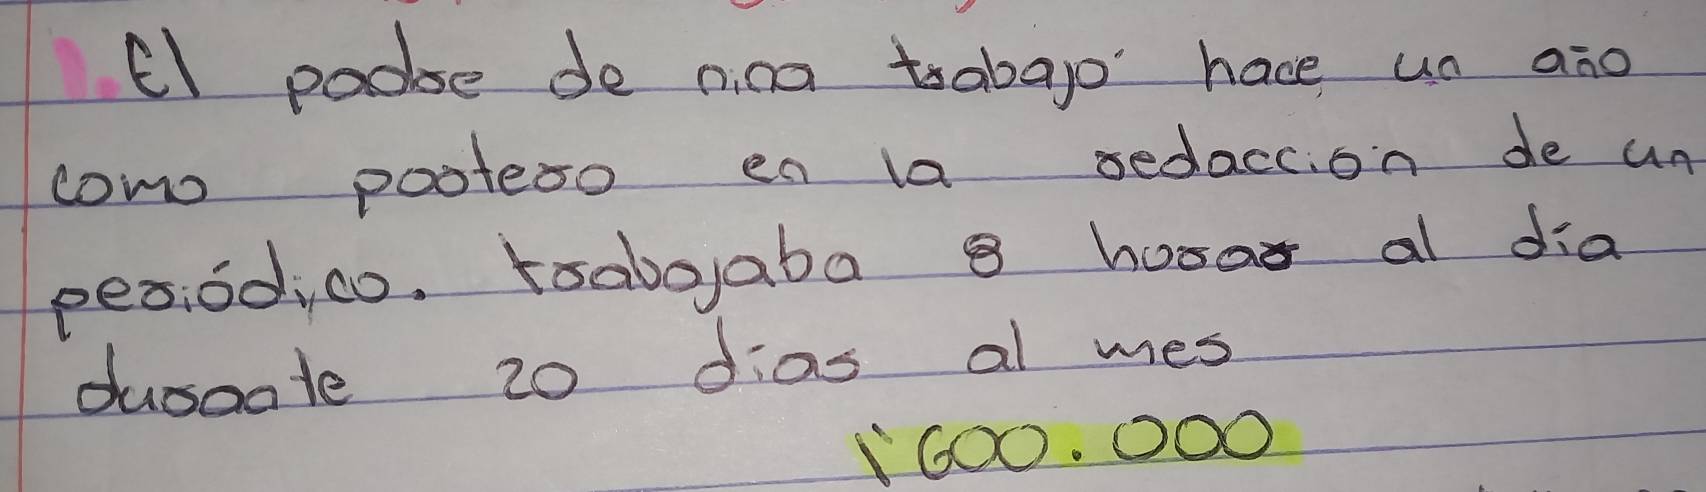 1. El padre de nina trabajo hace un año
como portero en la redacción de un
periódico. trabajaba 8 horas al día
durante 20 dias al mes
1'600.000